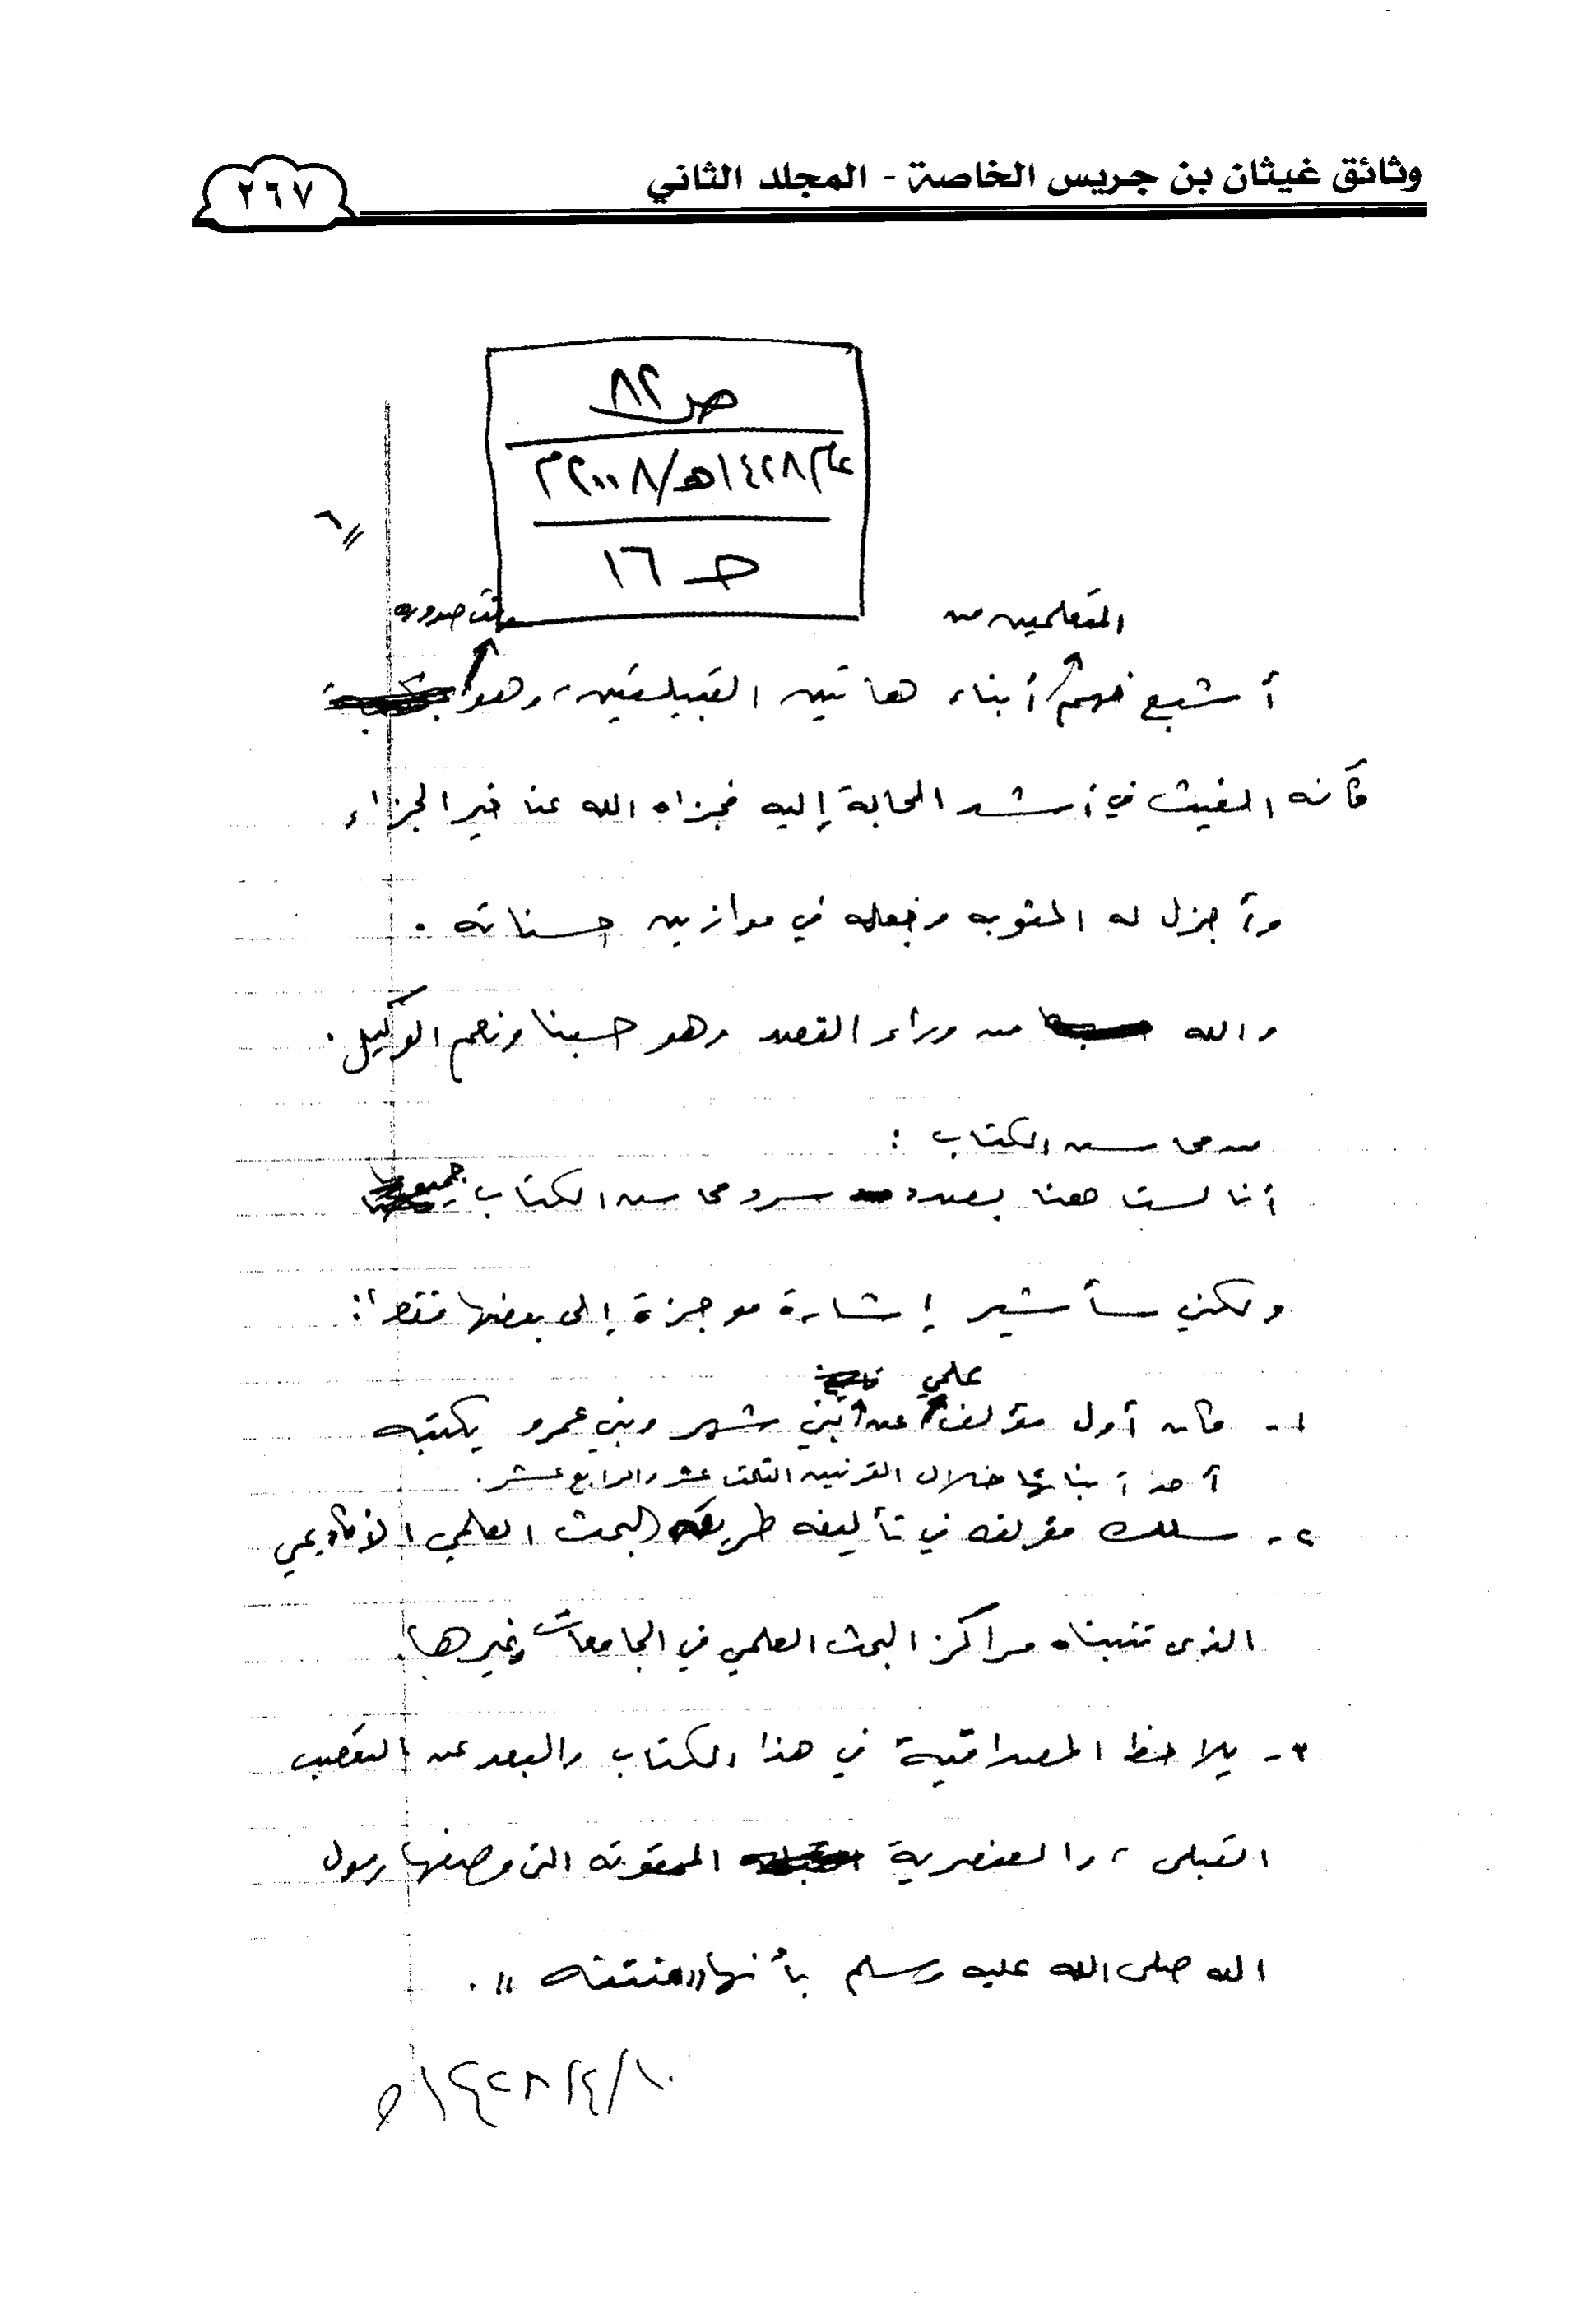 وثائق غيثان بن جريس الخاصة - المجلد الثاني
٢٦٧
ص ٨٢
عام ١٤٢٨هـ/٢٠٠٨م
حـ ١٦
٦
المتعلمين من
وقت صدوره
أشبع فهم أبناء هاتين القبيلتين، وهو
كأنه الغيث في أشد الحاجة إليه فجزاه الله عنا خير الجزاء
وأجزل له المثوبه وجعله في موازين حسناته .
والله من وراء القصد وهو حسبنا ونعم الوكيل .
من محاسن الكتاب :
أنا لست هنا بصدد سرد محاسن الكتاب جميعها
ولكني سأشير إشارة موجزة إلى بعضها فقط :
علمي
١- كان أول مؤلف عن بني شهر وبني عمرو يكتبه
أحد أبنائها خلال القرنين الثالث عشر والرابع عشر .
٢- سلك مؤلفه في تأليفه طريقة البحث العلمي الأكاديمي
الذى تتبناه مراكز البحث العلمي في الجامعات وغيرها .
٣- يلاحظ المصداقية في هذا الكتاب والبعد عن التعصب
القبلي ، والعنصرية الممقوته التى وصفها رسول
الله صلى الله عليه وسلم بأنها "منتنه" .
١٤٢٨/٤/١٠هـ